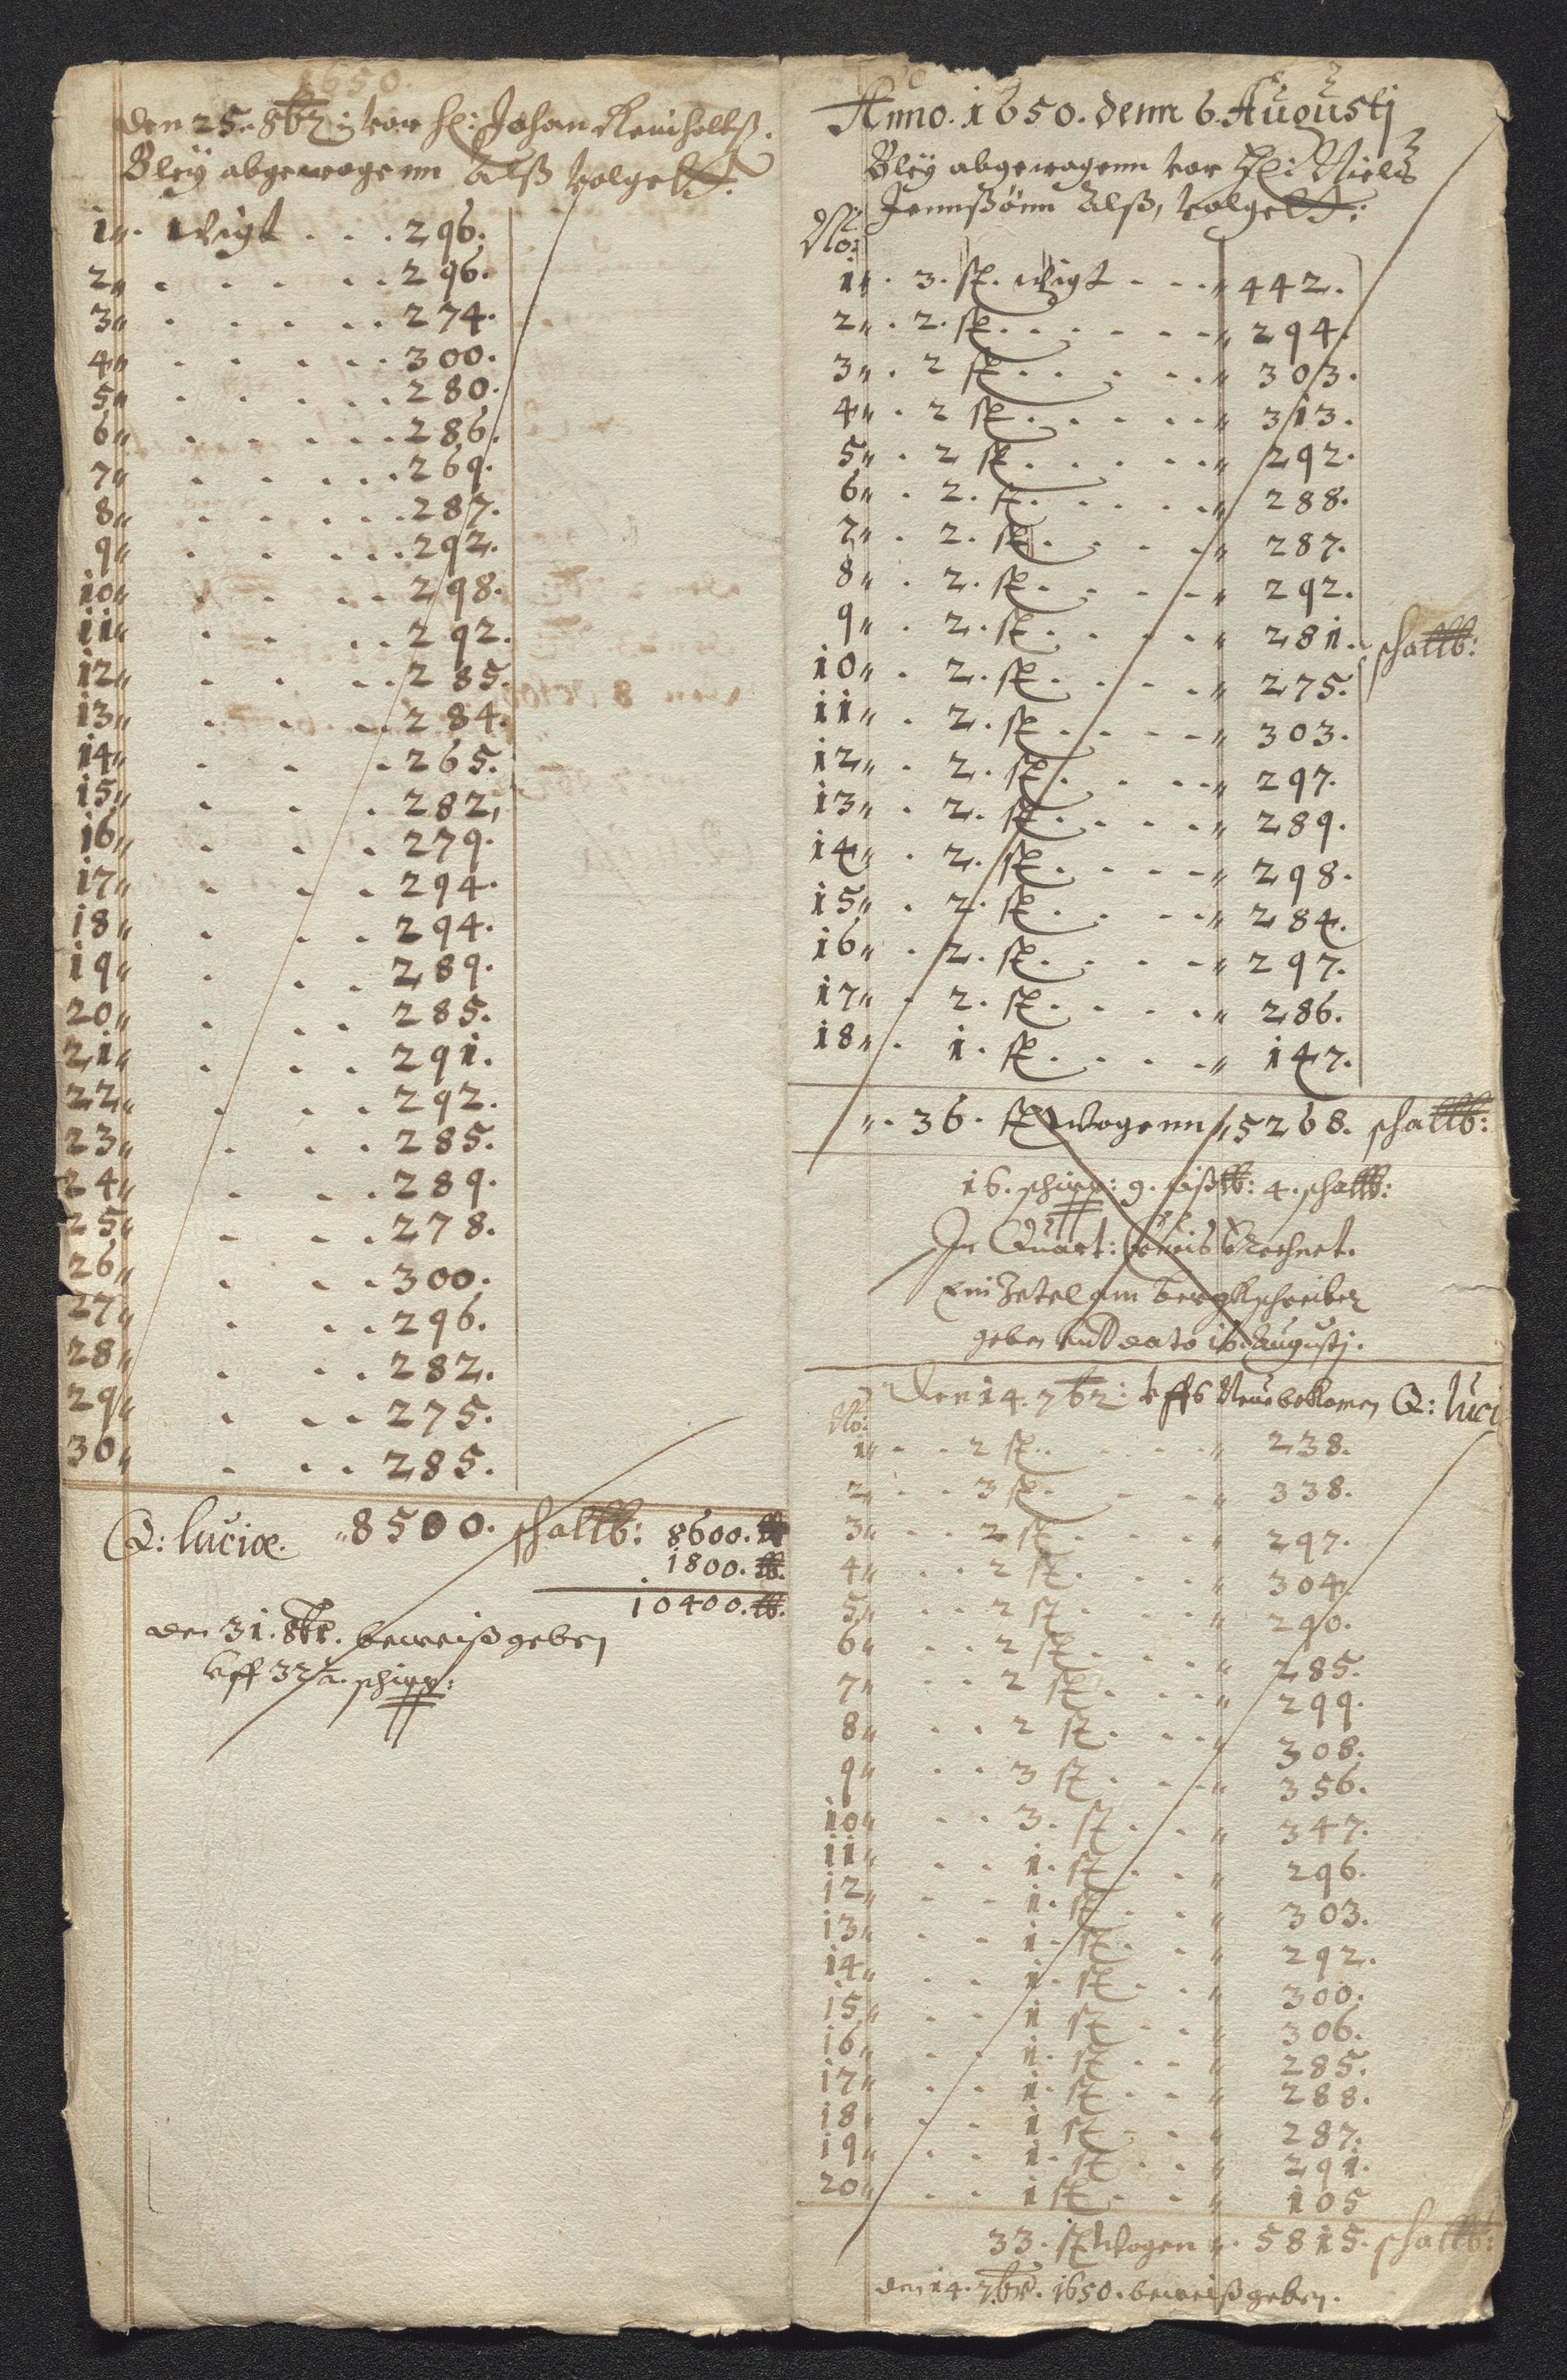 1650.
den 25. 8br: von H: Johan Reinholtß.
Bley abgewogenn Alß volgett.
1. wigt . . . 296.
2 . . . . . 296.
3 . . . . . 274.
4 . . . . . 300.
5 . . . . . 280.
6 . . . . . 286.
7 . . . . . 269.
8 . . . . . 287.
9 . . . . . 292.
10 . . . . 298.
11 . . . . 292.
12 . . . . 285.
13 . . . . 284.
14 . . . 265.
15 . . . 282,
16 . . . 279.
17 . . . 294.
18 . . . 294.
19 . . . 289.
20 . . . 285.
21 . . . 291.
22 . . . 292.
23 . . . 285.
24 . . . 289.
25 . . . 278.
26 . . . 300.
27 . . . 296.
28 . . . 282.
29 . . . 275.
30 . . . 285.
Q: luciæ. 8500. schallb: 8600. lb
1800. lb.
10400. lb.
den 31. 8br. beweiß geben
vff 32½. schipp:
Anno. 1650. denn 6. Augustj
Bley abgewagenn von H: Niels
Jennßönn Alß, volgett:
No:
1 . 3. st. wigt . . . 442.
2 . 2. st. . . . . 294.
3 . 2 st. . . . . 303.
4 . 2 st. . . . . 313.
5 . 2 st. . . . . 292.
6 . 2. st. . . . . 288.
7 . 2. st. . . . . 287.
8 . 2. st. . . . . 292.
9 . 2. st. . . . . 281. schallb:
10 . 2. st. . . . 275.
11 . 2. st. . . . 303.
12 . 2. st. . . . 297.
13 . 2. st. . . . 289.
14 . 2. st. . . . 298.
15 . 2. st. . . . 284.
16 . 2. st. . . . 297.
17 . 2. st. . . . 286.
18 . 1. st. . . . 147.
36. st wogenn 5268. schallb:
16. schipp: 9. lißlb: 4. schallb:
In Quart: Crucis Verechnet.
Ein Zetel am bergkschreiber
geben en dato 16. Augustj.
Den 14. 7br: vffs Neue bekomen Q: luci
No:
1 . . 2 st. . . . 238.
2 . . 3 st. . . . 338.
3 . . 2 st. . . . 297.
4 . . 2 st. . . . 304.
5 . . 2 st. . . . 290.
6 . . 2 st. . . . 285.
7 . . 2 st. . . . 299.
8 . . 2 st. . . . 308.
9 . . 3 st. . . . 356.
10 . . 3. st. . . 347.
11 . . 1. st. . . 296.
12 . . 1. st. . . 303.
13 . . 1. st. . . 292.
14 . . 1. st. . . 300.
15 . . 1 st. . . 306.
16 . . 1. st. . . 285.
17 . . 1. st. . . 288.
18 . . 1 st. . . 287.
19 . . 1. st. . . 291.
20 . . 1 st. . . 105
33. st Wogen . 5815. schallb:
den 14. 7br. 1650. beweiß geben.